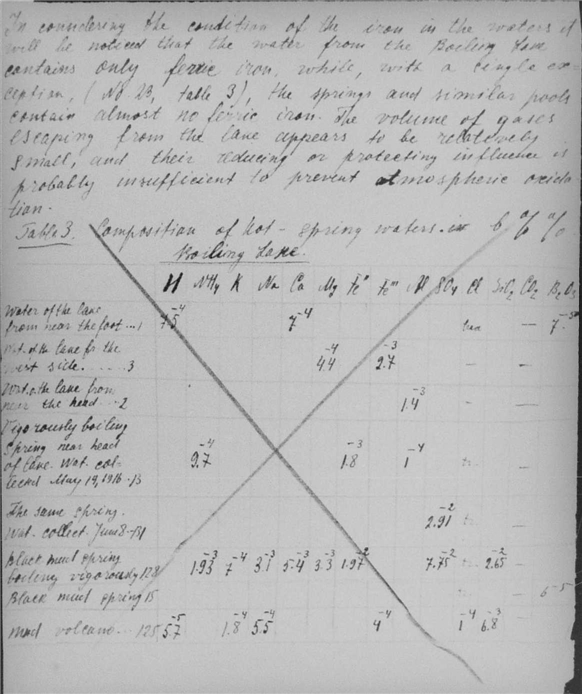 In considering the condition of the iron in the waters it
will be noticed that the water from the Boiling Lake
contains only ferric iron, while, with a single ex-
ception, (No 23, table 3), the springs and similar pools
contain almost no ferric iron. The volume of gases
escaping from the lake appears to be relatively
small, and their reducing or protecting influence is
probably insufficient to prevent atmospheric oxida-
tion.
Table 3. Composition of hot-spring waters in
Boiling Lake.
H NH4 K Na Ca Mg Fe" Fe"' Al SO4 Cl SiO2 CO2 B2O3
Water of the lake
from near the foot...1 7.5-4 7-4 —
west side......3 4.4-4 2.7-3 — —
Wat. o. the lake from
near the head...2 1.4-3 — —
Vigorously boiling
Spring near head
of lake. Wat. col- 9.7-4 1.8-3 1-4 tr. —
lected May 19, 1916-13
The same spring. 2.91-2
Wat. collect. June 8-
Black mud spring
boiling vigorously 12 1.93-3 7-4 3.1-3 5.4-3 3.3-3 1.97-2 7.75-2 2.65-2 —
Black mud spring 15 — 6-5
Mud volcano... 125 5.7-5 1.8-4 5.5-4 4-4 1-4 6.8-3 —